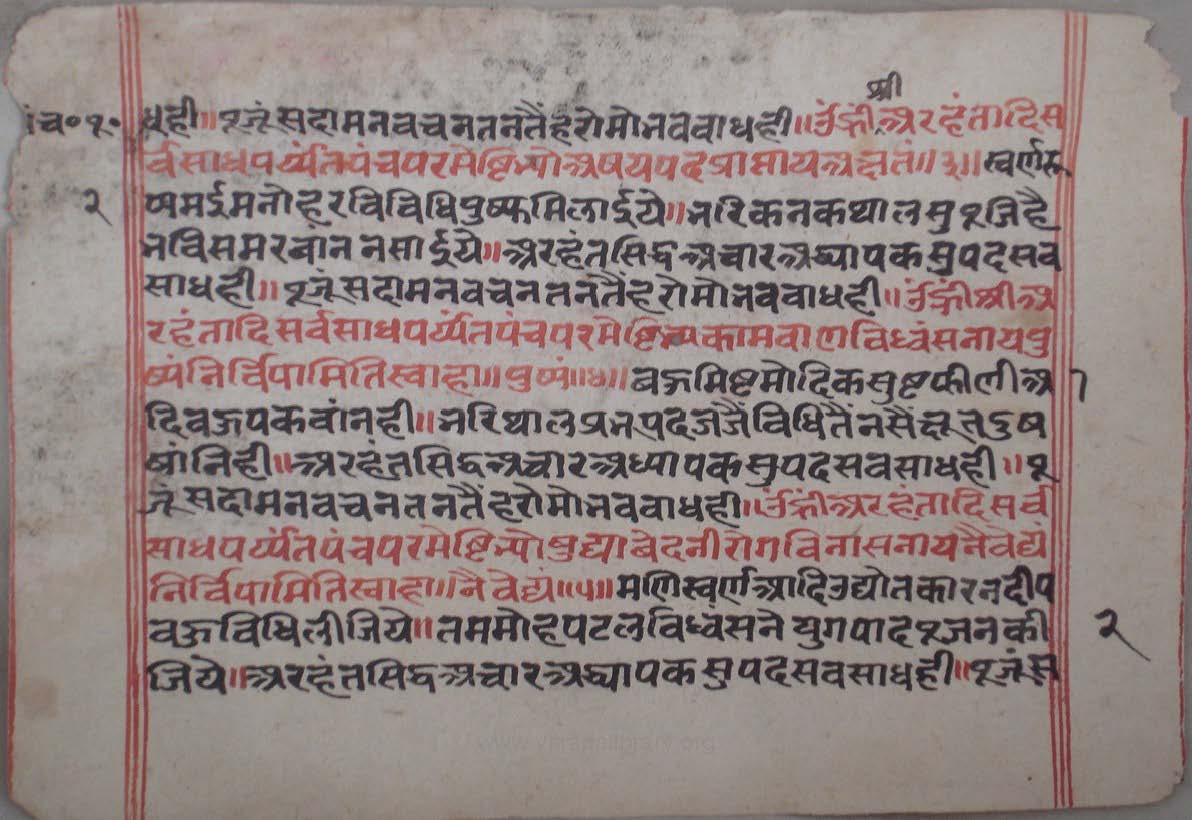 श्री
पंच॰ पू॰ धुही॥ पूजूं सदा मन वच न तन तैं हरो मो भव वाधही॥ ॐ ह्रीं अरहंतादि स
र्वसाधपर्य्यंत पंचपरमेष्टिभ्यो अषयपदप्राप्ताय अक्षतं॥३॥ स्वर्णरू
२ प्यमईमनोहरविविधिपुष्फमिलाईये॥ भरिकनकथालसुपूजिहै
भविसमरबांननसाईये॥ अरहंतसिद्धअचारअध्यापकसुपदसव
साधही॥ पूजूंसदामनवचनतनतैंहरोमोभववाधही॥ ॐह्रींश्रीअ
रहंतादिसर्वसाधपर्य्यंतपंचपरमेष्टिभ्यकामवाणविध्वंसनायपु
ष्पंनिर्विपामितिस्वाहा॥पुष्पं॥४॥ वऊमिष्टमोदिकसुष्टफीलीअ
दिवऊपकवांनही॥ भरिथालप्रभपदजजैंविधितैंनसैंक्षूतदुष
षांनिही॥ अरहंतसिद्धअचारअध्यापकसुपदसवसाधही॥ पू
जूंसदामनवचनतनतैंहरोमोभववाधही॥ ॐह्रींअरहंतादिसर्व
साधपर्य्यंतपंचपरमेष्टिभ्योषुद्याबेदनीरोगविनासनायनैवेद्यं
निर्विपामितिस्वाहा॥नैवेद्यं॥५॥ मणिस्वर्णआदिउद्योतकारनदीप
वऊविधिलीजिये॥ तममोहपटलविध्वंसनेयुगपादपूजनकी २
जिये॥ अरहंतसिद्धअचारअध्यापकसुपदसवसाधही॥ पूजूंस